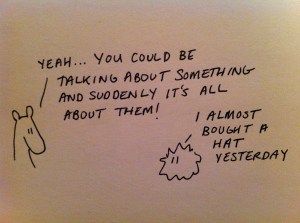 YEAH... YOU COULD BE
TALKING ABOUT SOMETHING
AND SUDDENLY IT'S ALL
ABOUT THEM!
I ALMOST
BOUGHT A
HAT
YESTERDAY